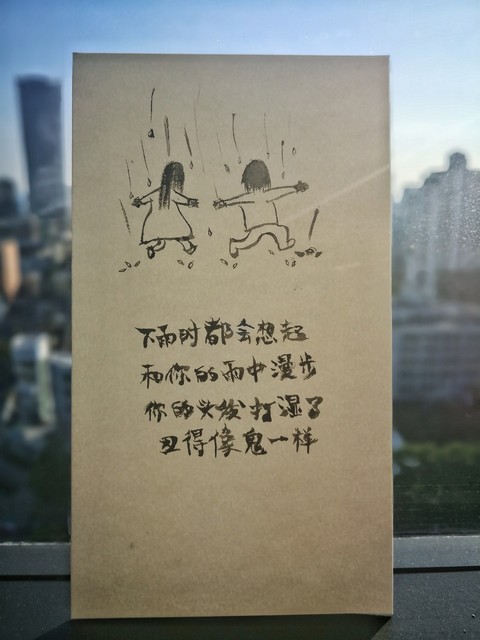 下雨时都会想起
和你的雨中漫步
你的头发打湿了
丑得像鬼一样